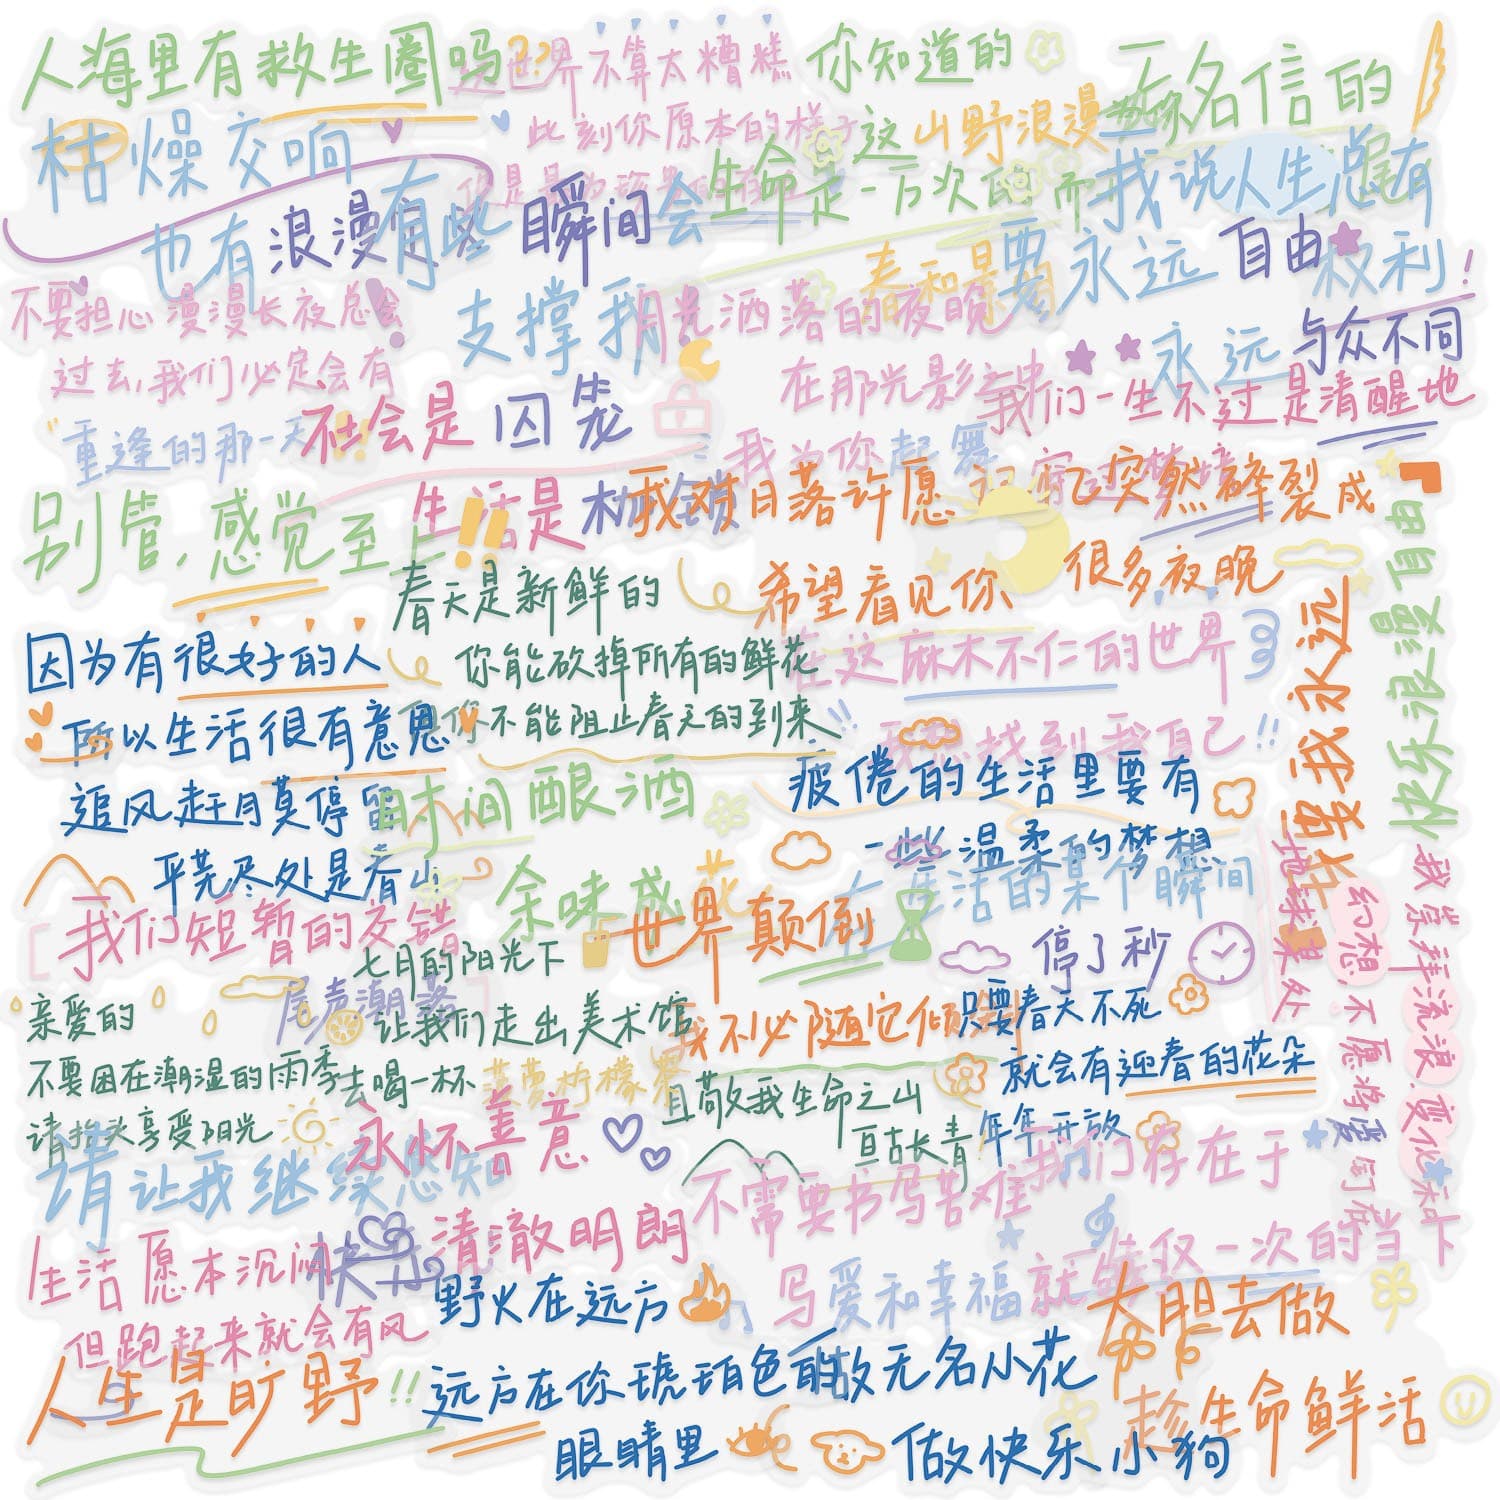 人海里有救生圈吗??
世界不算太糟糕
你知道的
无名信的
枯燥交响
此刻你原本的样子
这山野浪漫
也有浪漫
有些瞬间会
支撑我
生命是一万次的
春和景
我说人生总有
要永远自由
权利!
永远与众不同
不要担心漫漫长夜总会
过去,我们必定会有
重逢的那一天
月光洒落的夜晚
在那光影之中
我为你起舞
社会是囚笼
生活是枷锁
我们一生不过是清醒地
穿过梦境
别管,感觉至上
我对日落许愿
希望看见你
突然碎裂成
很多夜晚
春天是新鲜的
你能砍掉所有的鲜花
你不能阻止春天的到来
因为有很好的人
所以生活很有意思
在这麻木不仁的世界
我想找到我自己
快乐很漫自由
我永远
追风赶月莫停留
平芜尽处是春山
时间酿酒
余味成花
疲倦的生活里要有
一些温柔的梦想
在生活的某个瞬间
停了秒
地球某处
我们短暂的交错
尾声潮落
世界颠倒
我不必随它倾
七月的阳光下
让我们走出美术馆
去喝一杯菠萝柠檬茶
亲爱的
不要困在潮湿的雨季
请抬头享受阳光
只要春天不死
就会有迎春的花朵
年年开放
且敬我生命之山
亘古长青
我崇拜流浪,变化和
幻想,不愿将爱
请让我继续感知
快乐
永怀善意
清澈明朗
不需要书写苦难
写爱和幸福
我们存在于
就仅一次的当下
生活愿本沉闷
但跑起来就会有风
野火在远方
远方在你琥珀色的
眼睛里
大胆去做
趁生命鲜活
人生是旷野
做无名小花
做快乐小狗